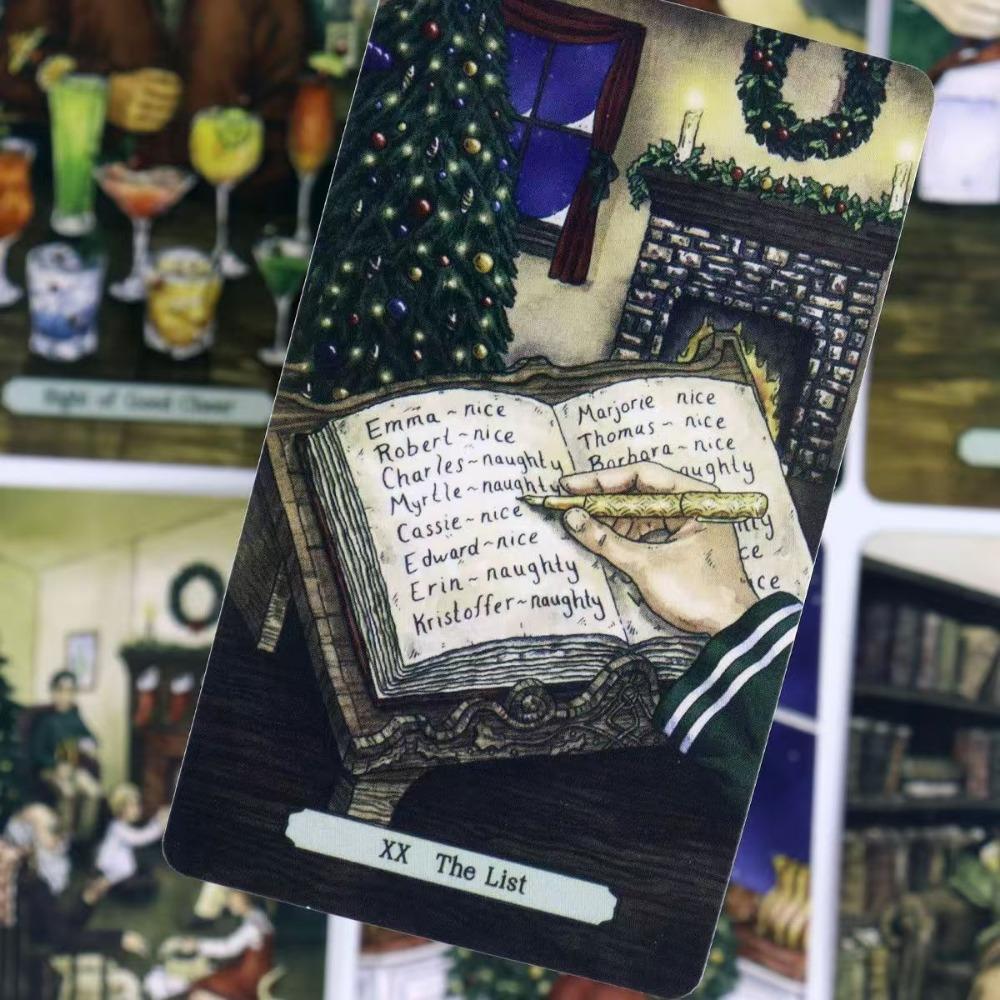 Emma ~ nice
Robert ~ nice
Charles ~ naughty
Myrtle ~ naughty
Cassie ~ nice
Edward ~ nice
Erin ~ naughty
Kristoffer ~ naughty
Marjorie nice
Thomas ~ nice
Barbara ~ nice
aughty
ty
ce
ice
XX The List
Eight of Good Cheer